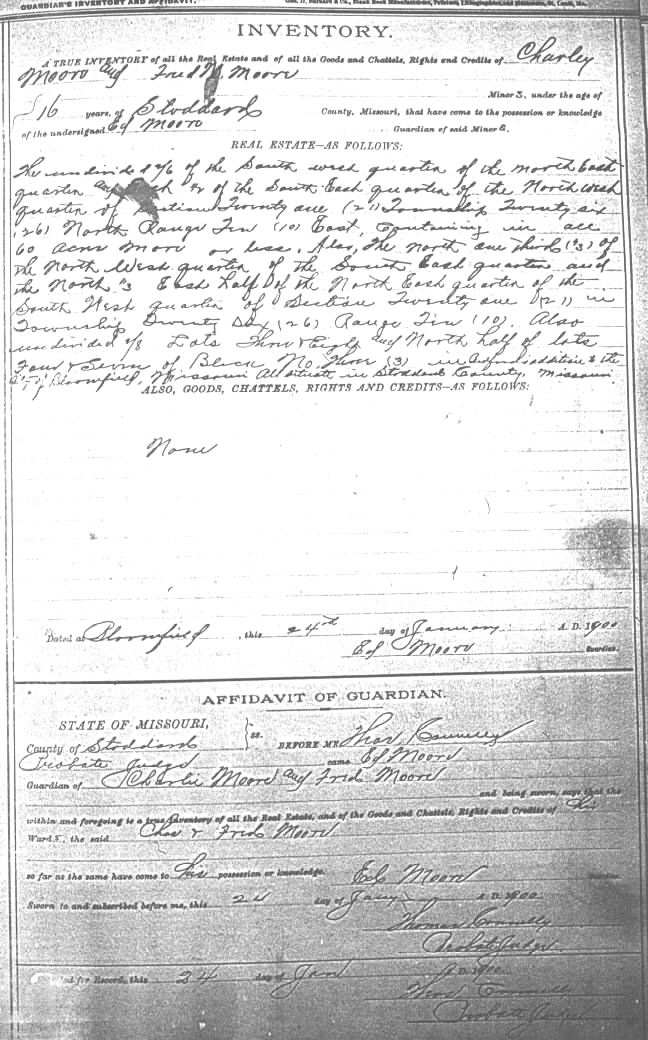 GUARDIAN'S INVENTORY AND AFFIDAVIT.
INVENTORY.
A TRUE INVENTORY of all the Real Estate and of all the Goods and Chattels, Rights and Credits of Charley
Moore and Fred M. Moore
Minors, under the age of
16 years, of Stoddard County, Missouri, that have come to the possession or knowledge
of the undersigned Ed Moore Guardian of said Minors.
REAL ESTATE—AS FOLLOWS:
The undivided 2/6 of the South west quarter of the North East
quarter and 1/2 of the South East quarter of the North west
quarter of Section Twenty one (21) Township Twenty six
(26) North Range Ten (10) East, Containing in all
60 acres more or less. Also, the North one third (1/3) of
the North West quarter of the South East quarter and
the North 1/3 East half of the North East quarter of the
South West quarter of Section Twenty one (21) in
Township Twenty Six (26) Range Ten (10). Also
undivided 2/6 Lots Three & Eight and North half of lots
Four & Seven of Block No. Three (3) in addition to the
of Bloomfield, Missouri All situate in Stoddard County, Missouri
ALSO, GOODS, CHATTELS, RIGHTS AND CREDITS—AS FOLLOWS:
None
Dated at Bloomfield, this 24rd day of January A. D. 1900
Ed Moore Guardian.
AFFIDAVIT OF GUARDIAN.
STATE OF MISSOURI,
County of Stoddard } ss. BEFORE ME Thos Connelly
Probate Judge came Ed Moore
Guardian of Charlie Moore and Fred Moore
and being sworn, says that the
within and foregoing is a true Inventory of all the Real Estate, and of the Goods and Chattels, Rights and Credits of his
Wards, the said Chas & Fred Moore
so far as the same have come to his possession or knowledge. Ed Moore Guardian.
Sworn to and subscribed before me, this 24 day of Jany A. D. 1900
Thomas Connelly
Probate Judge
for Record, this 24 day of Jan A. D. 1900
Thos Connelly
Probate Judge